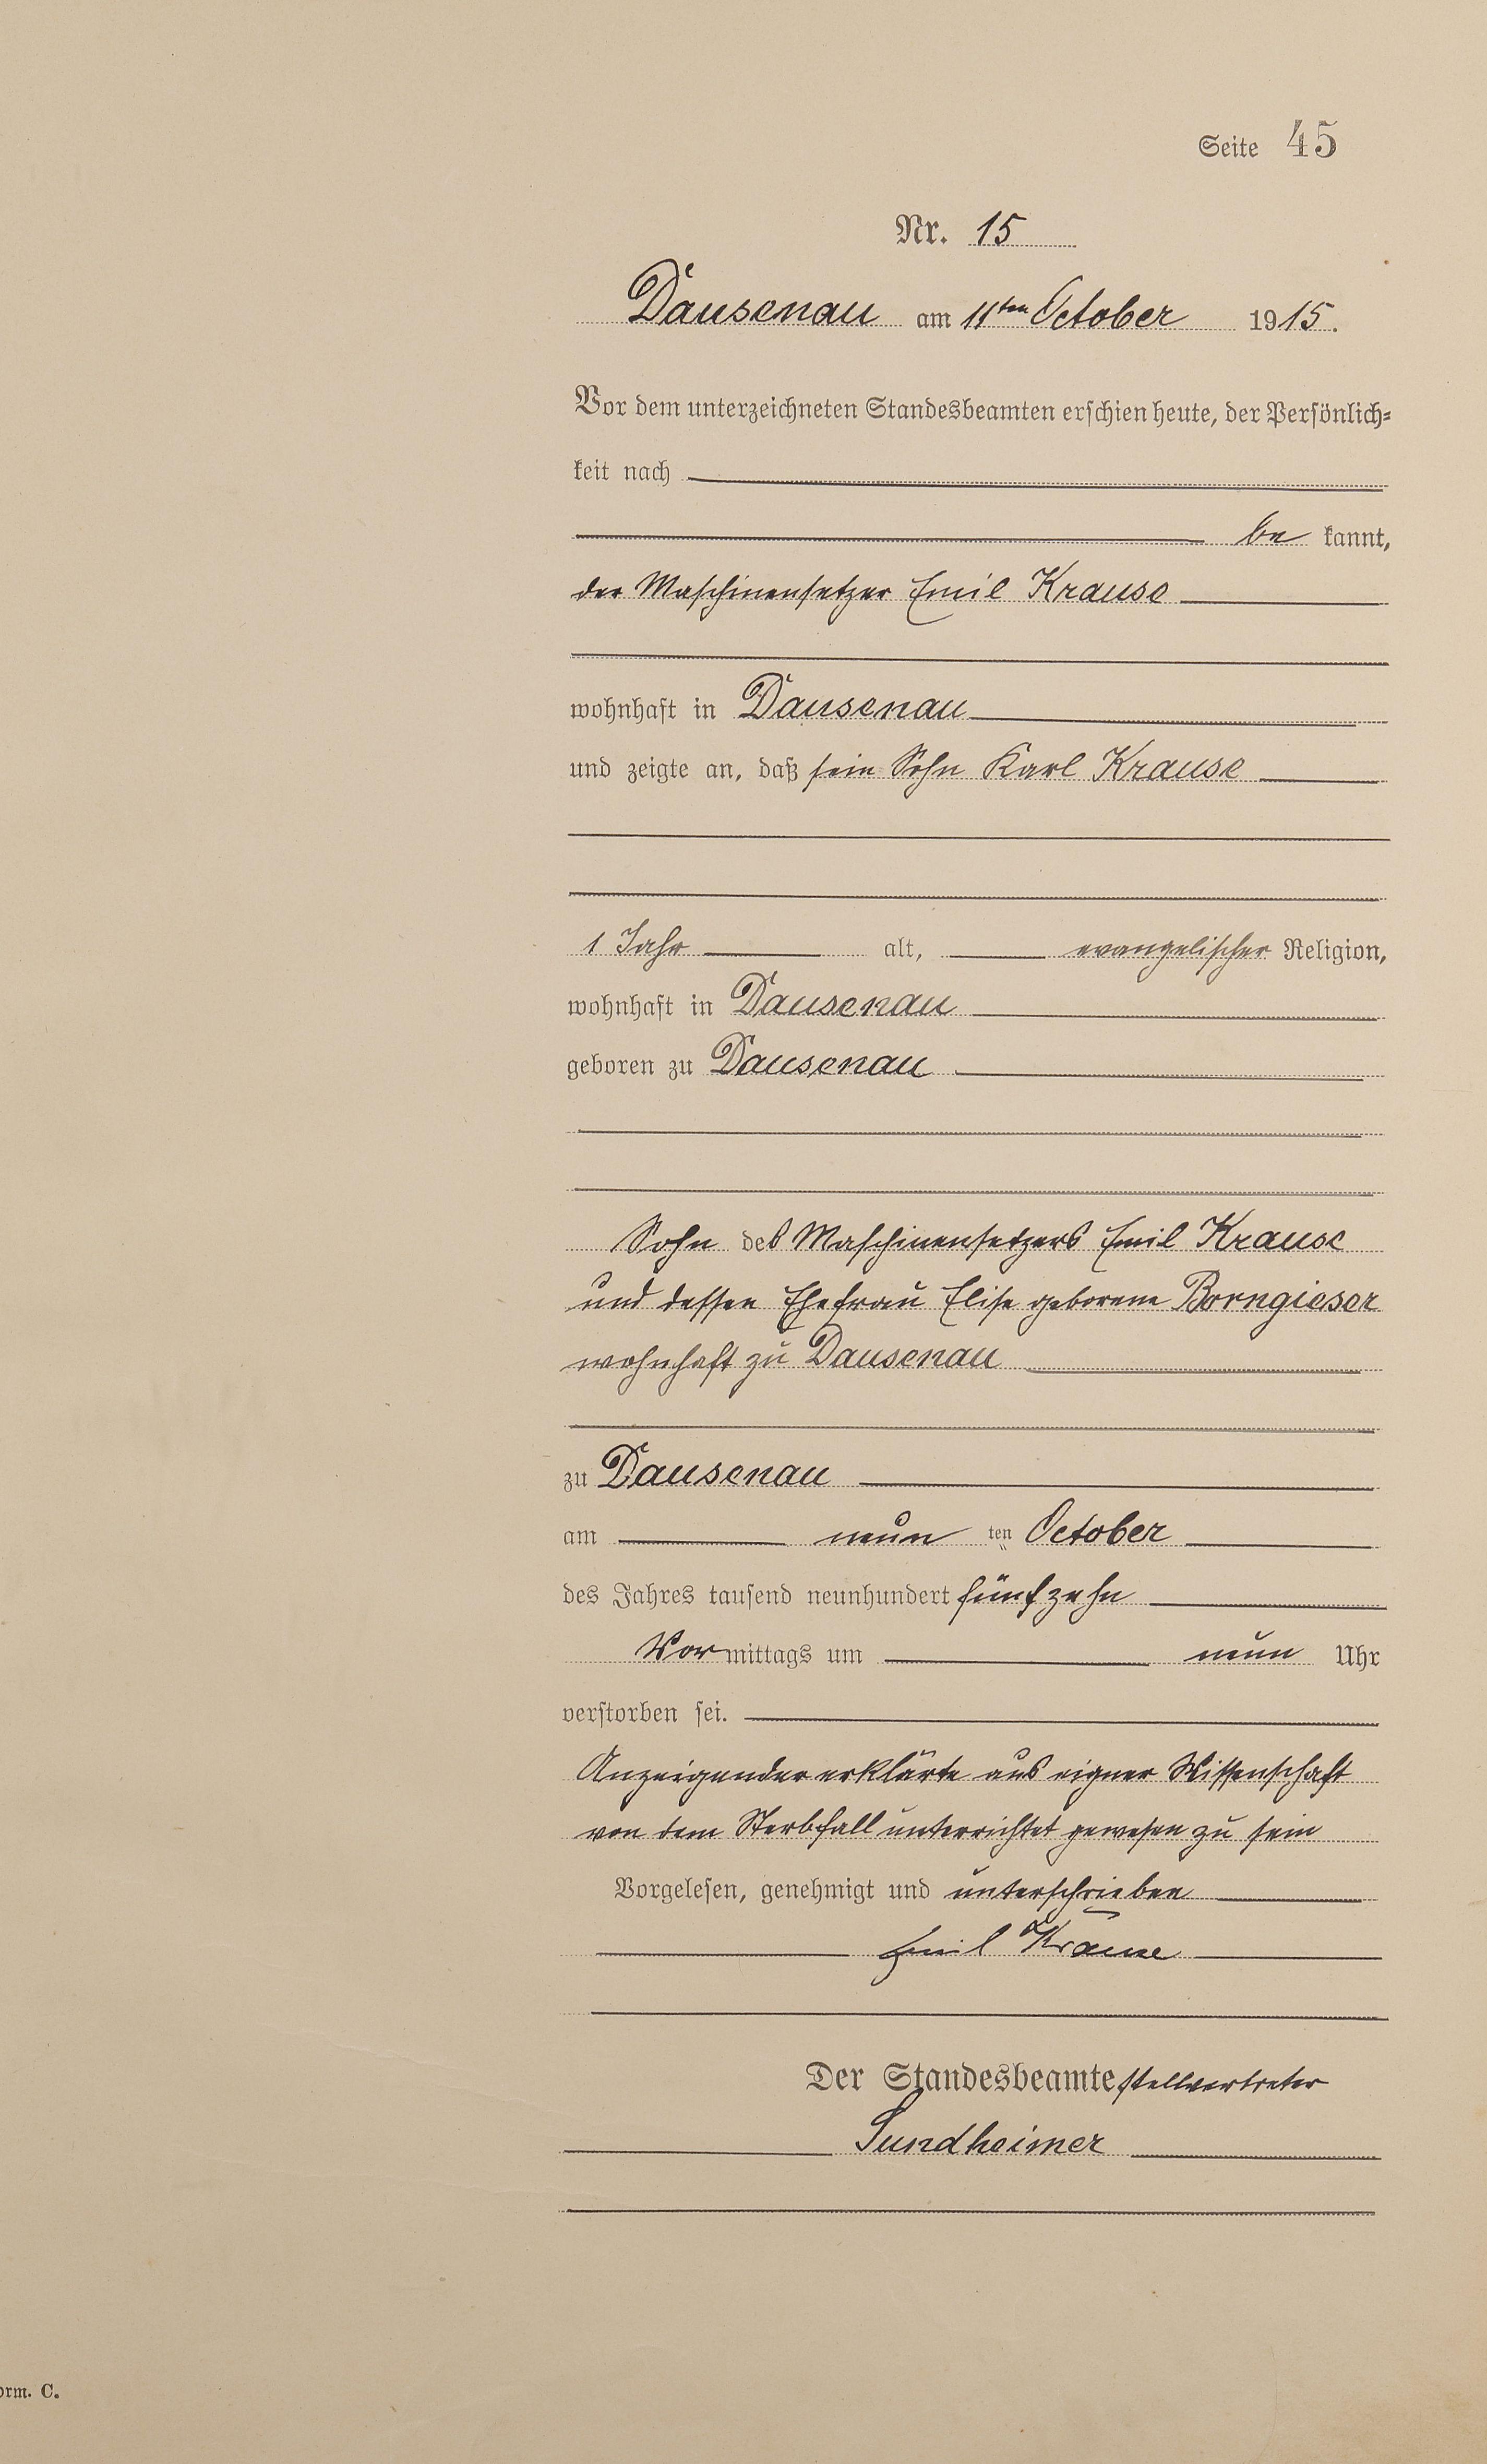 Seite 45
Nr. 15
Dausenau am 11ten October 1915.
Vor dem unterzeichneten Standesbeamten erschien heute, der Persönlich-
keit nach
be kannt,
der Maschinensetzer Emil Krause
wohnhaft in Dausenau
und zeigte an, daß sein Sohn Karl Krause
1 Jahr alt, evangelischer Religion,
wohnhaft in Dausenau
geboren zu Dausenau
Sohn des Maschinensetzers Emil Krause
und dessen Ehefrau Elise geborene Borngieser
wohnhaft zu Dausenau
zu Dausenau
am neun ten October
des Jahres tausend neunhundert fünfzehn
Vor mittags um neun Uhr
verstorben sei.
Anzeigender erklärte aus eigner Wissenschaft
von dem Sterbfall unterrichtet gewesen zu sein
Vorgelesen, genehmigt und unterschrieben
Emil Krause
Der Standesbeamte stellvertreter
Sundheimer
orm. C.